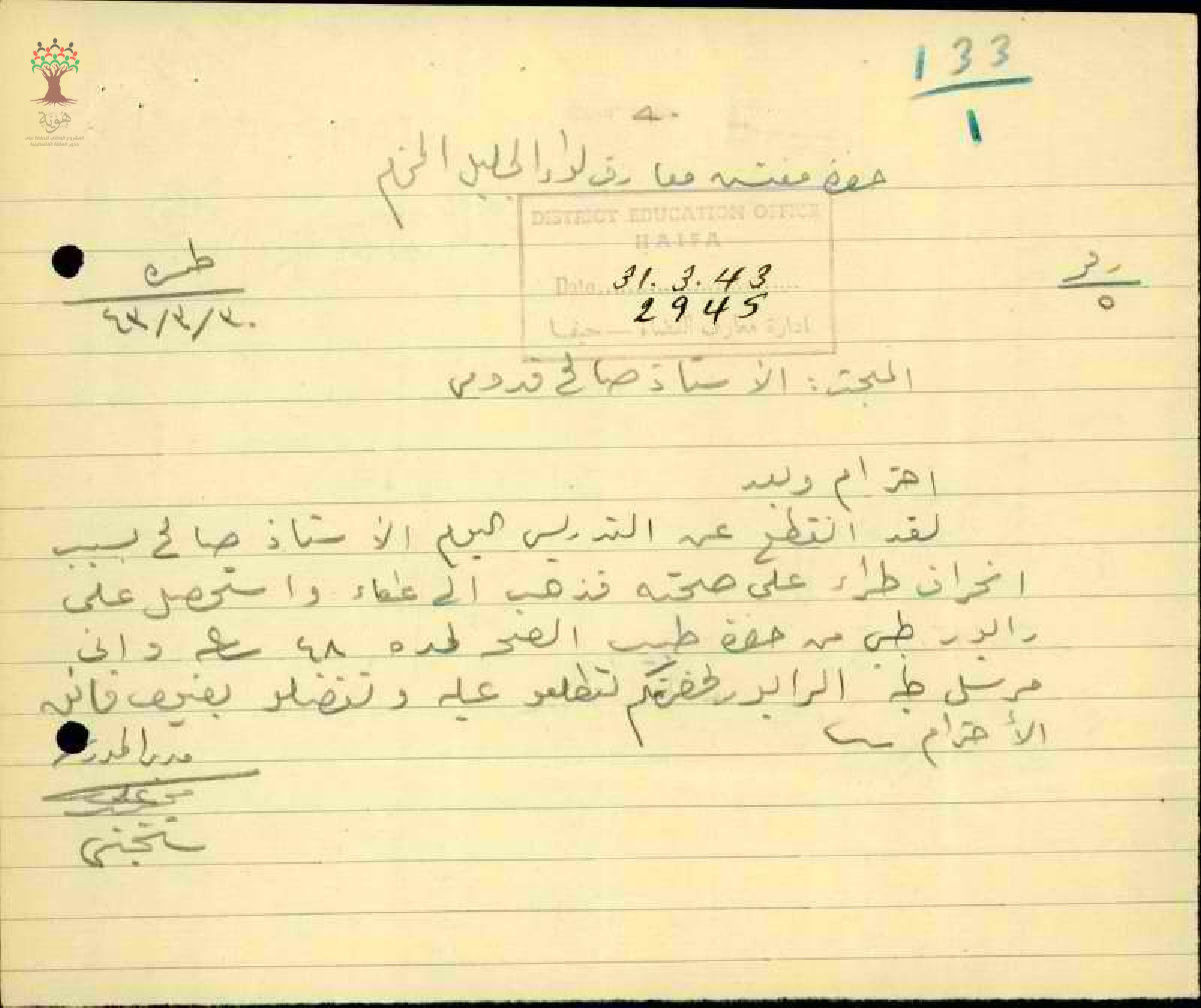 133
1
هوية
حضرة مفتش معارف لواء الجليل المحترم
DISTRICT EDUCATION OFFICE
HAIFA
رقم
٥
Date 31.3.43
2945
ادارة معارف القضاء — حيفا
طمره
٤٣/٣/٣٠
المبحث: الأستاذ صالح قدومي
احترام وبعد
لقد انقطع عن التدريس اليوم الأستاذ صالح بسبب
انحراف طراء على صحته فذهب الى عكاء واستحصل على
رابور طبي من حضرة طبيب الصحه لمده ٤٨ ساعه واني
مرسل طيه الرابور لحضرتكم لتطلعو عليه وتفضلو بقبول فائق
الأحترام
مدير المدرسه